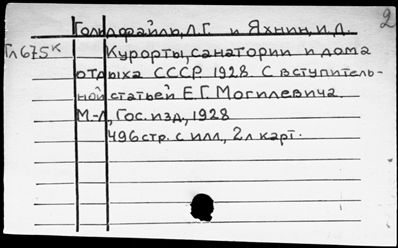 2
Гольдфайль, Л.Г. и Яхнин, И.Д.
Гл675к Курорты, санатории и дома
отдыха СССР 1928. С вступитель-
ной статьей Е.Г. Могилевича.
М.-Л, Гос. изд., 1928
496 стр. с илл., 2л карт.